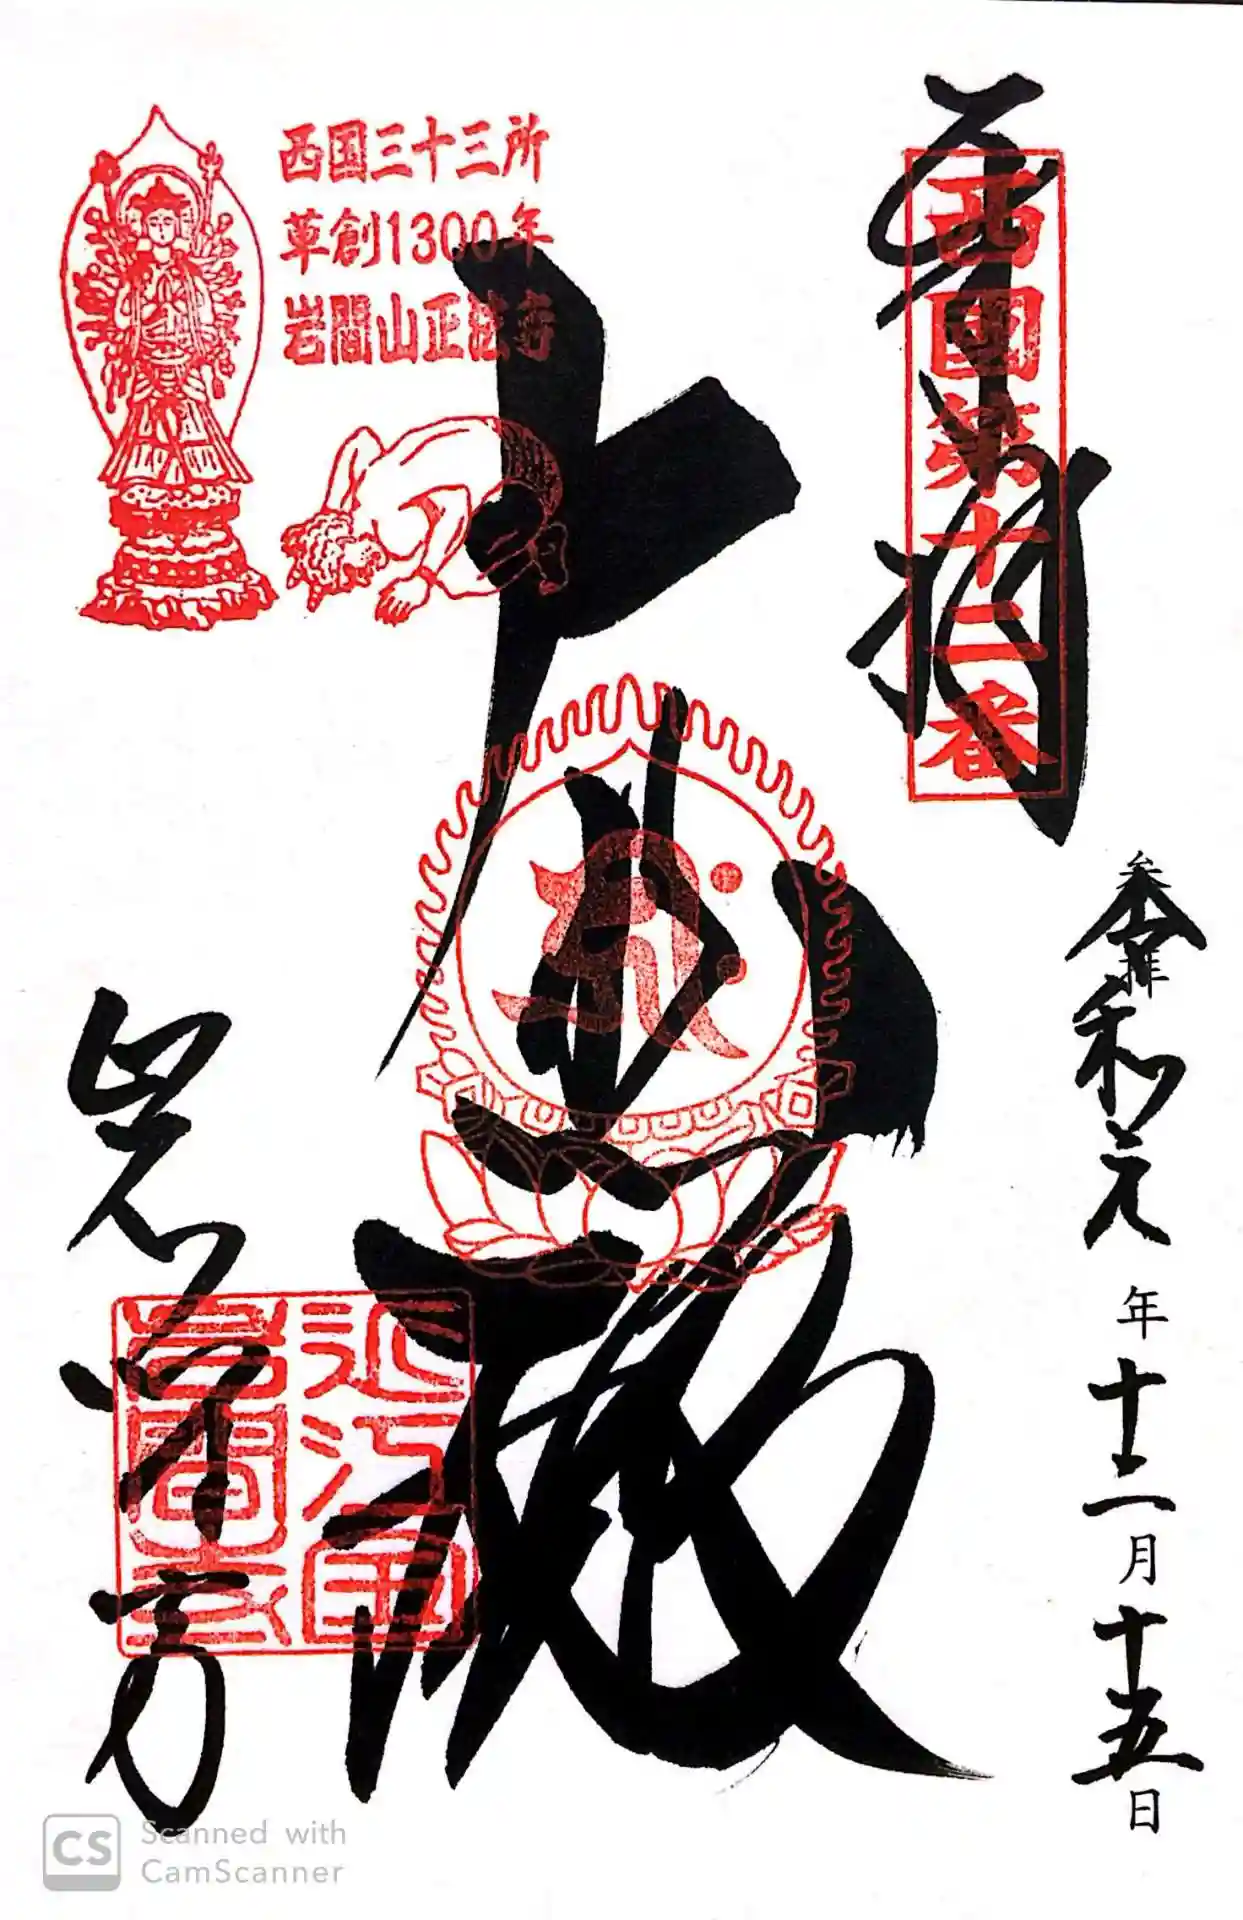 奉拝
西國第十二番
参拝
令和元年十二月十五日
西国三十三所
草創1300年
岩間山正法寺
大悲殿
岩間寺
近江国
岩間寺
CS Scanned with
CamScanner